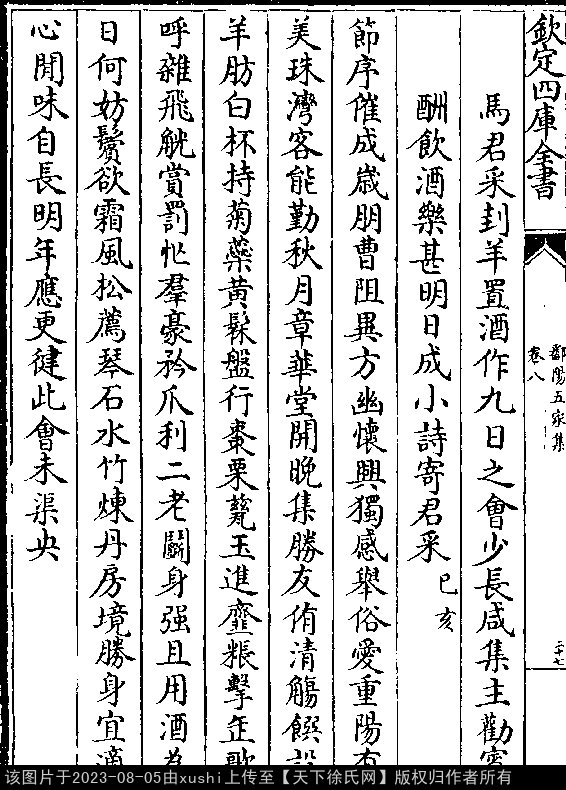 欽定四庫全書
鄱陽五家集
卷八
二十七
馬君采刲羊置酒作九日之會少長咸集主勸賓
酬飲酒樂甚明日成小詩寄君采己亥
節序催成歳朋曹阻異方幽懷興獨感舉俗愛重陽有
美珠灣客能勤秋月章華堂開晩集勝友侑清觴饌設
羊肪白杯持菊蘂黄髹盤行棗栗甆玉進虀粻擊缶歌
呼雜飛觥賞罰忙羣豪矜爪利二老鬭身强且用酒為
日何妨鬢欲霜風松薦琴石水竹煉丹房境勝身宜適
心閒味自長明年應更健此會未渠央
该图片于2023-08-05由xushi上传至【天下徐氏网】版权归作者所有